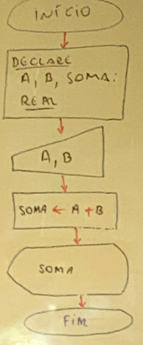 INÍCIO
DECLARE
A, B, SOMA:
REAL
A, B
SOMA ← A + B
SOMA
FIM